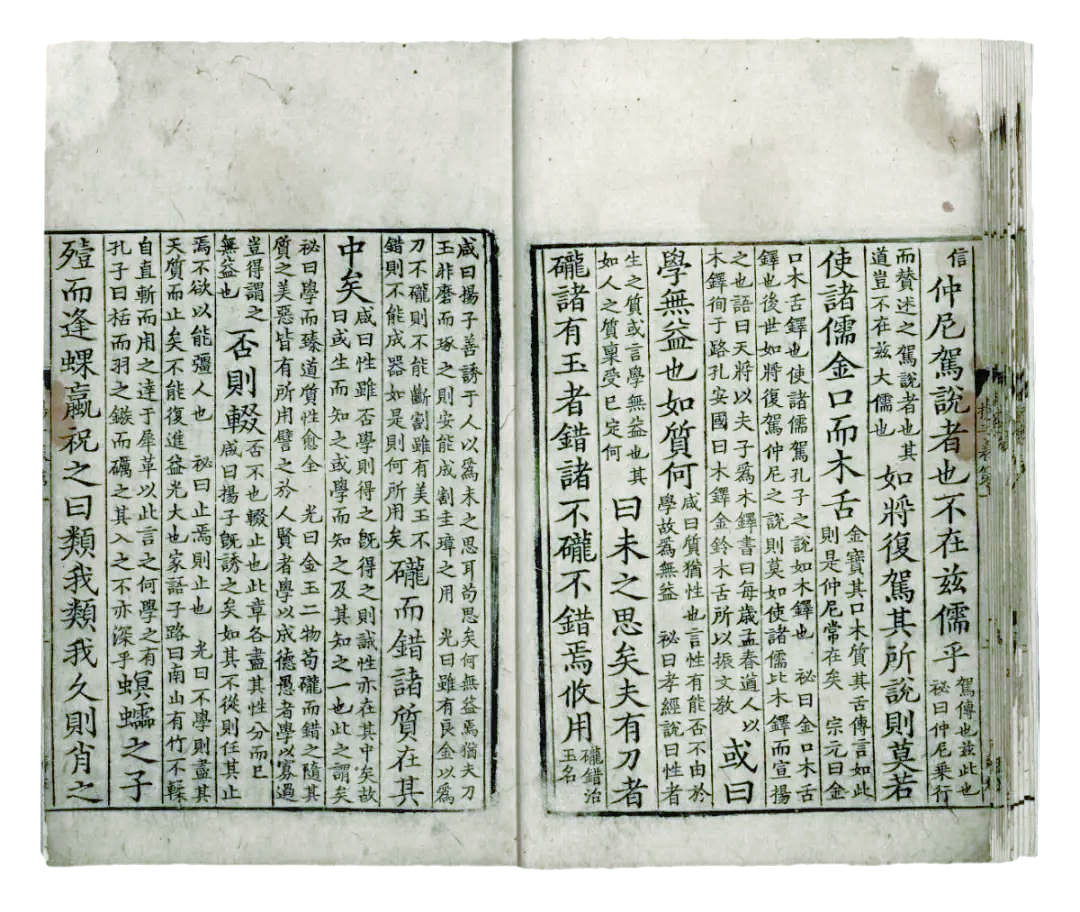 信仲尼駕說者也不在兹儒乎
駕傳也兹此也
祕曰仲尼乘行
而賛述之駕說者也其
道豈不在兹大儒也
如將復駕其所說則莫若
使諸儒金口而木舌
金寶其口木質其舌傳言如此
則是仲尼常在矣 宗元曰金
口木舌鐸也使諸儒駕孔子之說如木鐸也 祕曰金口木舌
鐸也後世如將復駕仲尼之說則莫如使諸儒比木鐸而宣揚
之也語曰天將以夫子爲木鐸書曰每歳孟春遒人以
木鐸徇于路孔安國曰木鐸金鈴木舌所以振文敎
或曰
學無益也如質何
咸曰質猶性也言性有能否不由於
學故爲無益 祕曰孝經說曰性者
生之質或言學無益也其
如人之質稟受已定何
曰未之思矣夫有刀者
礲諸有玉者錯諸不礲不錯焉攸用
礲錯治
玉名
咸曰揚子善誘于人以爲未之思耳苟思矣何無益焉猶夫刀
玉非磨而琢之則安能成割圭璋之用 光曰雖有良金以爲
刀不礲則不能斷割雖有美玉不
錯則不能成器如是則何所用矣
礲而錯諸質在其
中矣
咸曰性雖否學則得之旣得之則誠性亦在其中矣故
曰或生而知之或學而知之及其知之一也此之謂矣
祕曰學而臻道質性愈全 光曰金玉二物苟礲而錯之隨其
質之美惡皆有所用譬之於人賢者學以成德愚者學以寡過
豈得謂之
無益也
否則輟
否不也輟止也此章各盡其性分而已
咸曰揚子旣誘之矣如其不從則任其止
焉不欲以能彊人也 祕曰止焉則止也 光曰不學則盡其
天質而止矣不能復進益光大也家語子路曰南山有竹不輮
自直斬而用之達于犀革以此言之何學之有
孔子曰栝而羽之鏃而礪之其入之不亦深乎
螟蠕之子
殪而逢蜾蠃祝之曰類我類我久則肖之